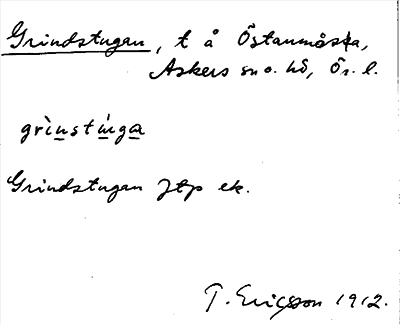 Grindstugan, t å Östanmåsta,
Askers sn o. hd, Ör. l.
grìnstúnga
Grindstugan Jtp ek.
T. Ericsson 1912.